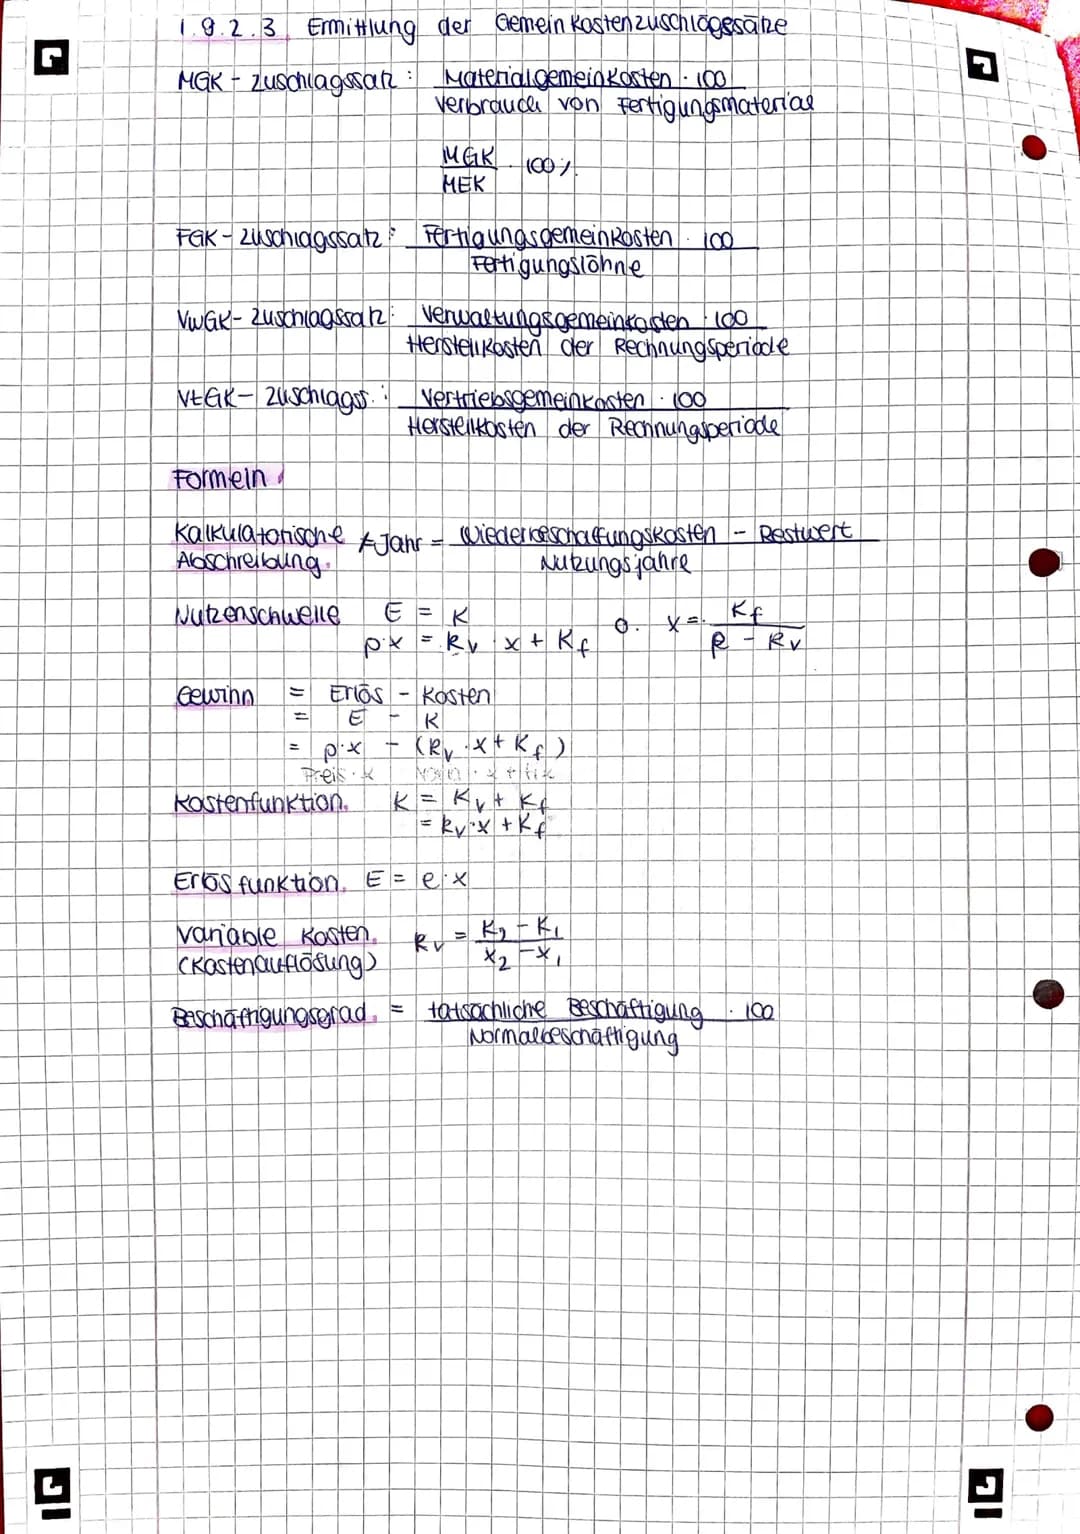 1.9.2.3 Ermittlung der Gemeinkostenzuschlagssätze
MGK - Zuschlagssatz : Materialgemeinkosten · 100
Verbrauch von Fertigungsmaterial
MGK · 100%
MEK
FGK - Zuschlagssatz : Fertigungsgemeinkosten · 100
Fertigungslöhne
VwGK - Zuschlagssatz : Verwaltungsgemeinkosten · 100
Herstellkosten der Rechnungsperiode
VtGK - Zuschlagss. : Vertriebsgemeinkosten · 100
Herstellkosten der Rechnungsperiode
Formeln
Kalkulatorische /Jahr = Wiederbeschaffungskosten - Restwert
Abschreibung Nutzungsjahre
Nutzenschwelle E = K
p·x = kv · x + Kf o. x = Kf
p - kv
Gewinn = Erlös - Kosten
= E - K
= p·x - (kv · x + Kf)
Preis · x
Kostenfunktion K = Kv + Kf
= kv·x + Kf
Erlösfunktion E = e·x
variable Kosten kv = K2 - K1
(Kostenauflösung) x2 - x1
Beschäftigungsgrad = tatsächliche Beschäftigung · 100
Normalbeschäftigung